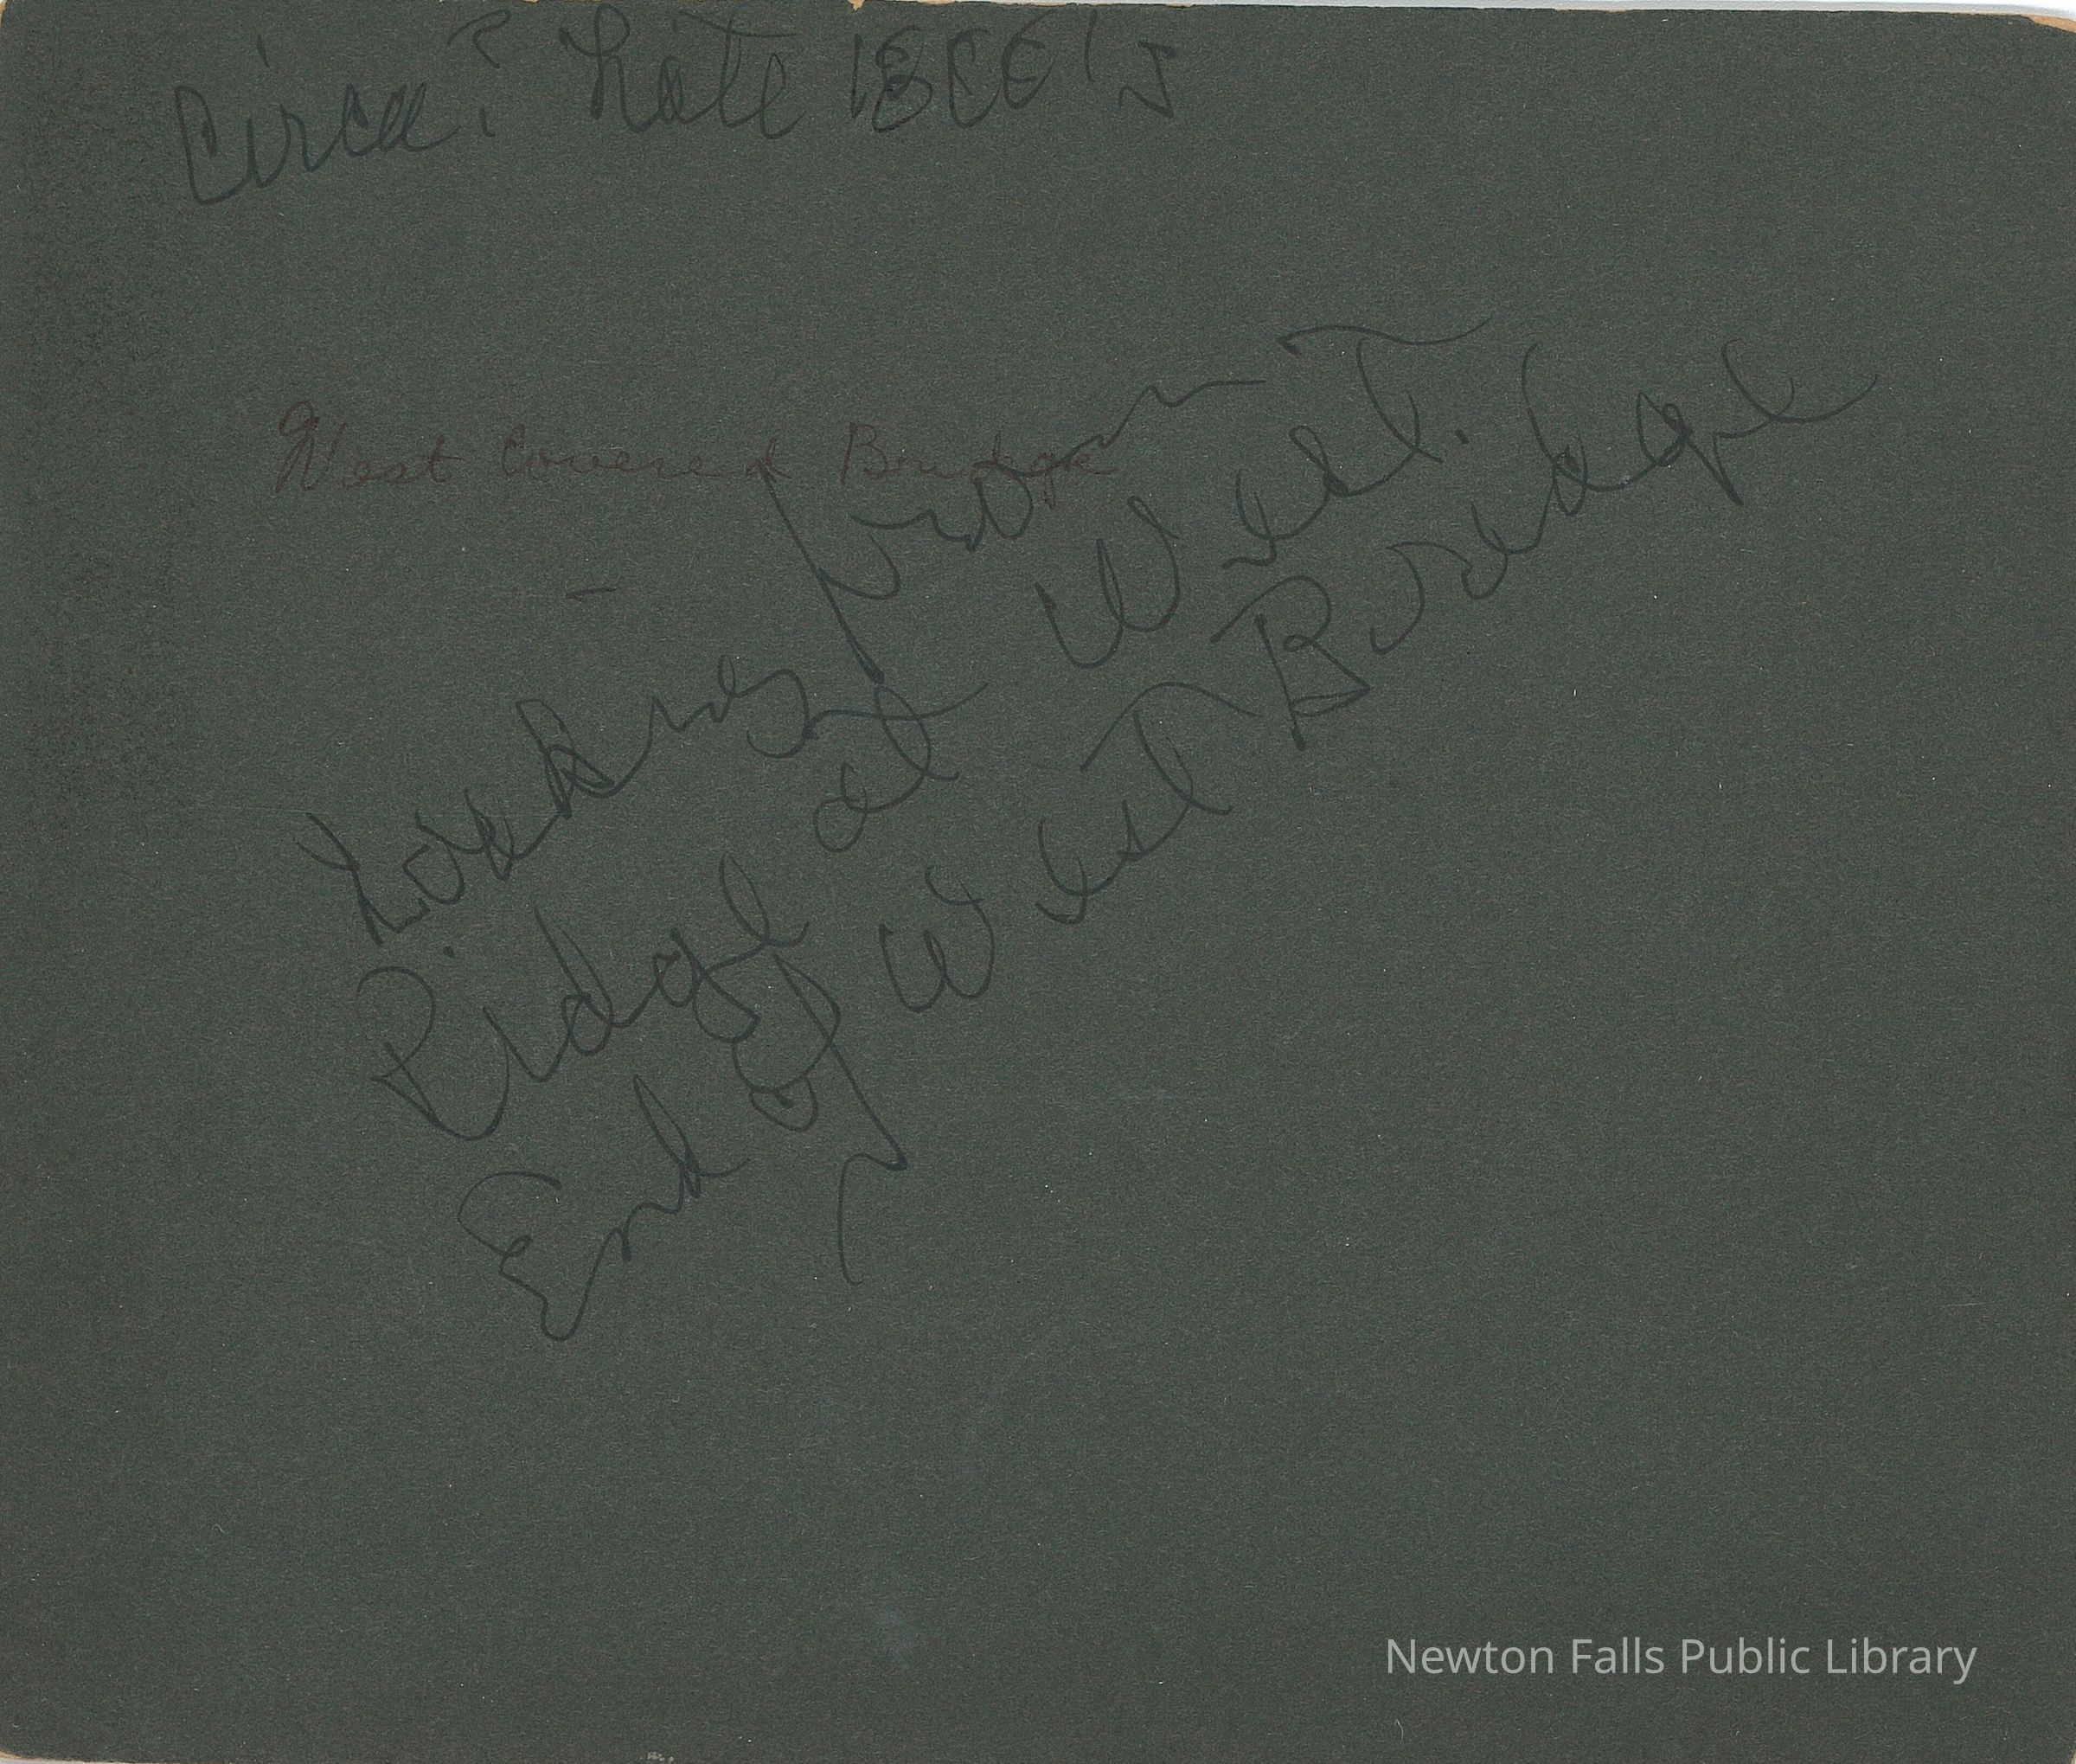 Circa? Late 1800's
West Covered Bridge
Looking from
Ridge at West.
End of West Bridge
Newton Falls Public Library